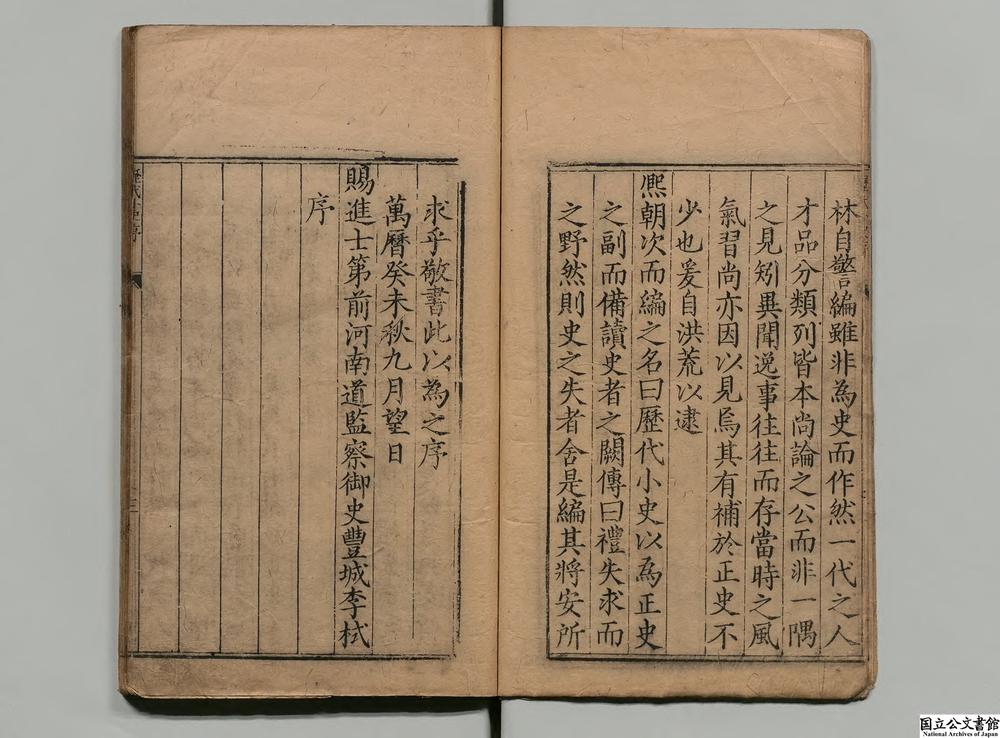 林自警編雖非為史而作然一代之人
才品分類列皆本尚論之公而非一隅
之見矧異聞逸事往往而存當時之風
氣習尚亦因以見焉其有補於正史不
少也爰自洪荒以逮
熈朝次而編之名曰歷代小史以為正史
之副而備讀史者之闕傳曰禮失求而
之野然則史之失者舍是編其將安所
求乎敬書此以為之序
萬曆癸未秋九月望日
賜進士第前河南道監察御史豐城李栻
序
三
国立公文書館
National Archives of Japan